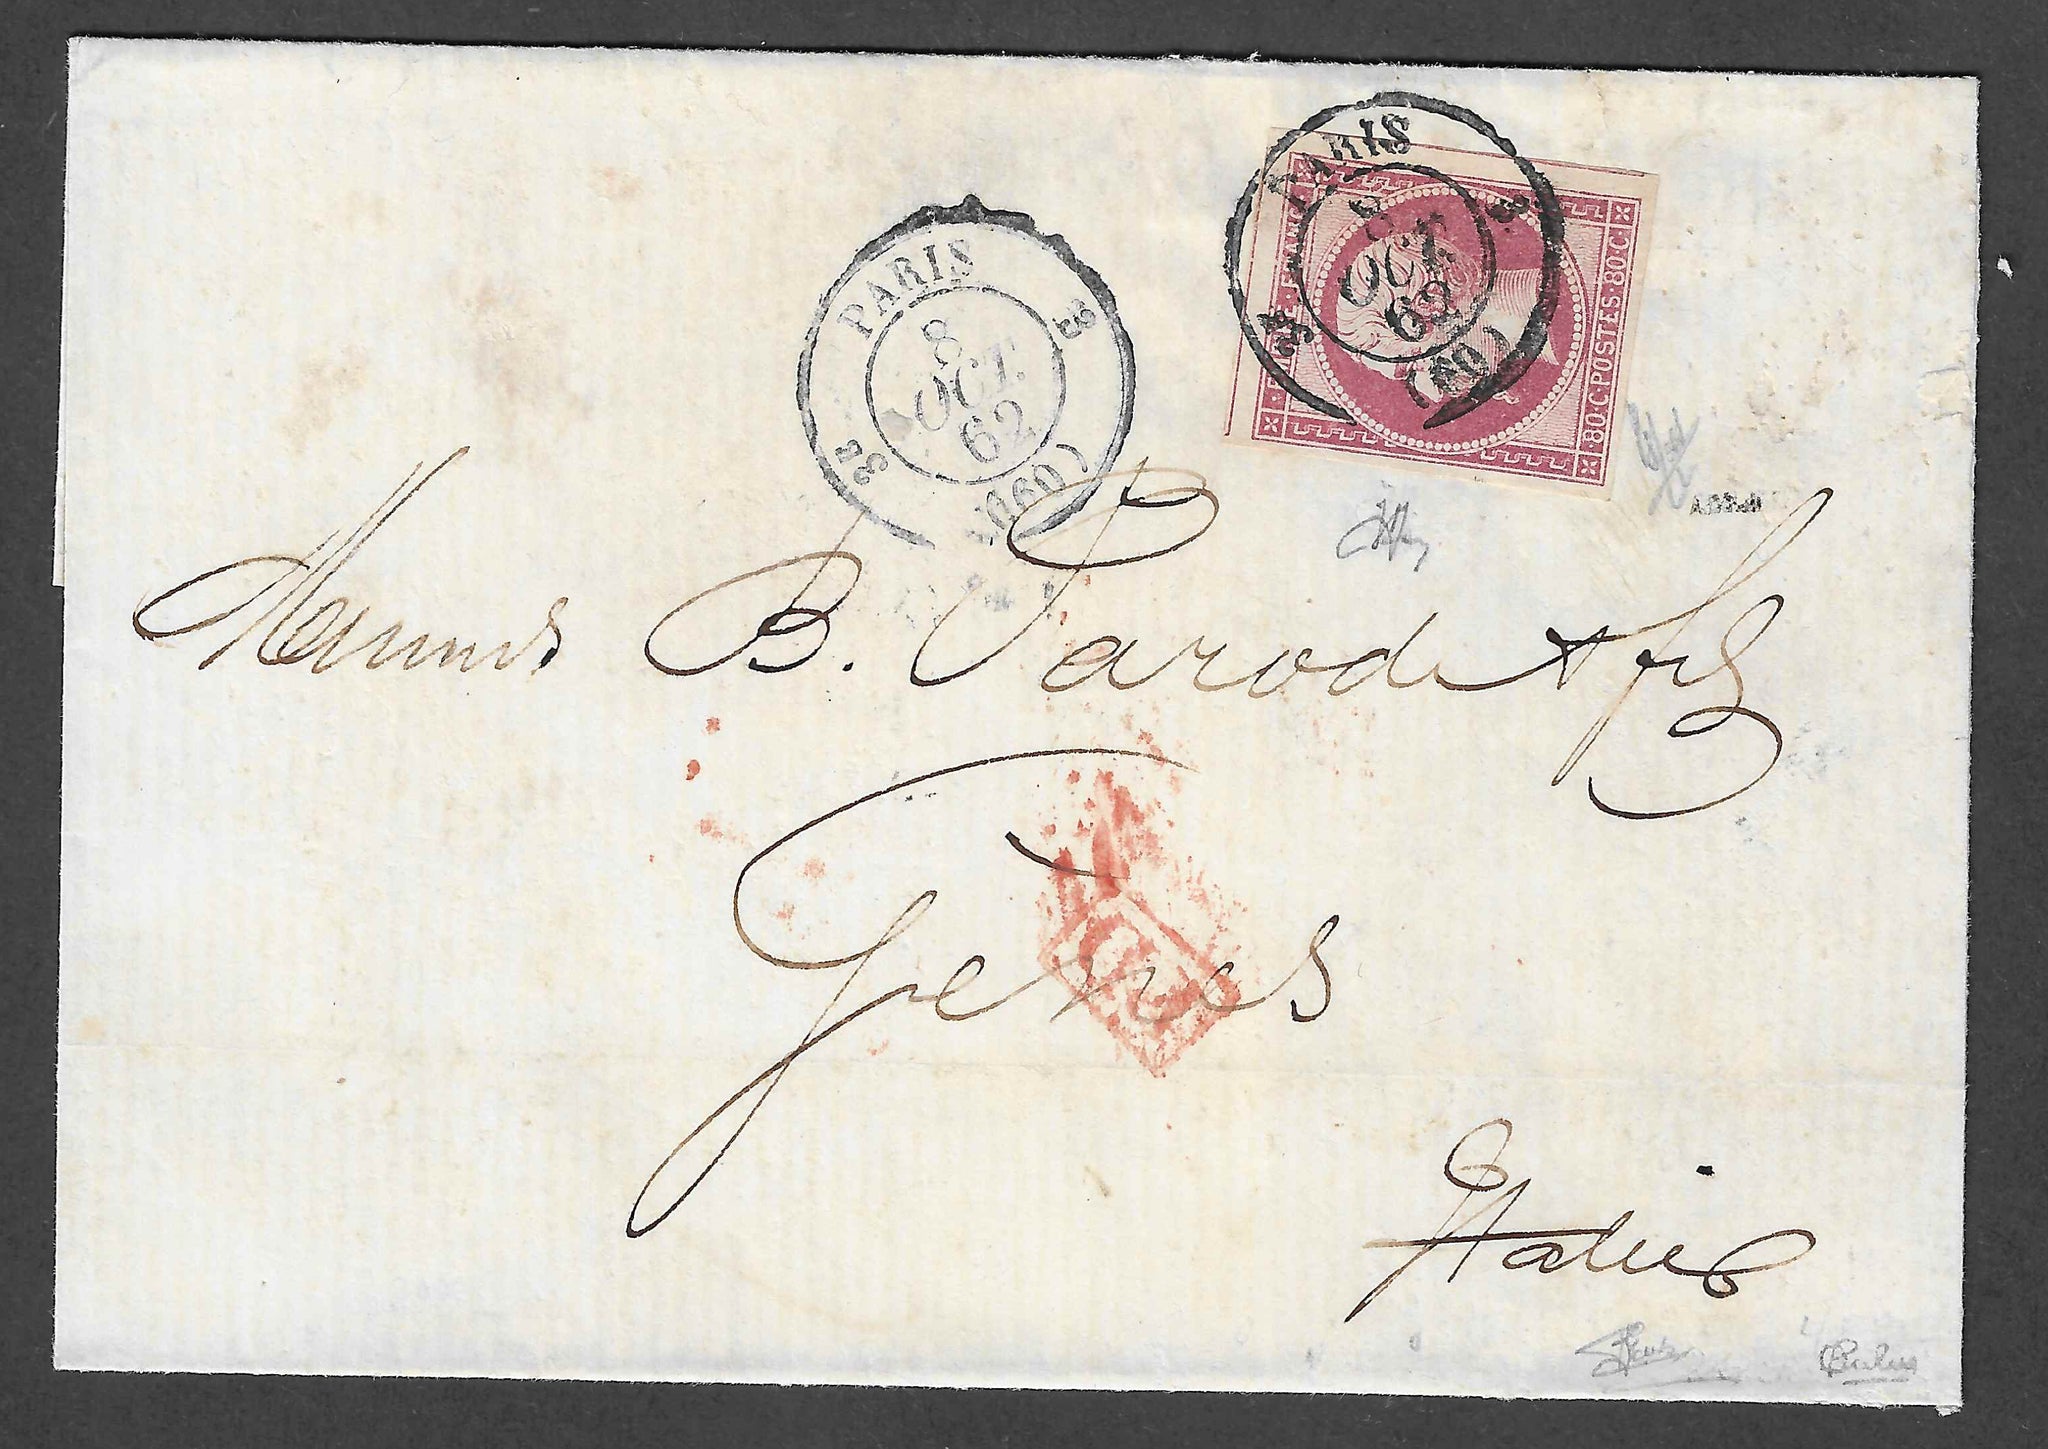 PARIS
8
OCT.
62
(60)
3E
3
PARIS
8
OCT.
62
(60)
3E
3
EMPIRE · FRANC ·
· 80 · C · POSTES · 80 C ·
Messieurs B. Parodi & fils
Gênes
PD
Italie